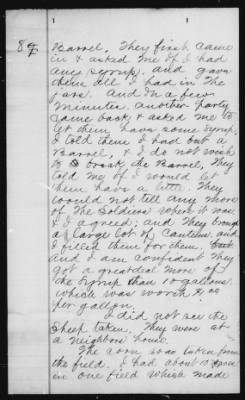 Barrel. They first came
in & asked me if I had
any syrup, and gave
them all I had in the
jars. And in a few
minutes another party
came back & asked me to
let them have some syrup.
I told them I had but a
Barrel, I do not wish
to break the Barrel, They
told me if I would let
them have a little They
would not till any more
of the Soldiers where it was
& I agreed; and They
a large lot of Canteens, and
I filled them for them,
and I am confident They
got a great deal more of
the Syrup than 10 gallons.
which was worth
per gallon.
I did not see the
Sheep taken. They were at
a neighbors house.
The corn was taken from
the field. I had about
in one field which made